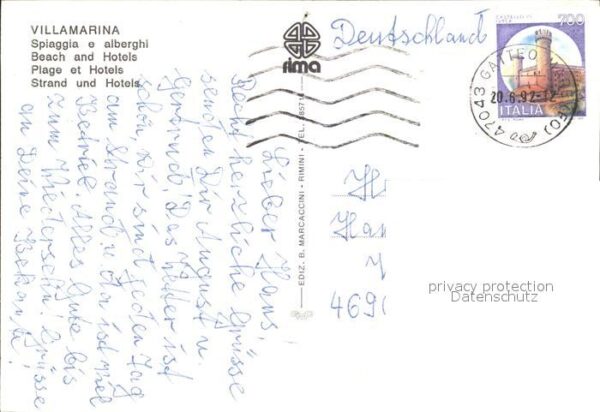 VILLAMARINA
Spiaggia e alberghi
Beach and Hotels
Plage et Hotels
Strand und Hotels
rima
EDIZ. B. MARCACCINI - RIMINI - TEL.
Deutschland
700
ITALIA
47043 GATTEO
20.8.92-12
(FO)
Lieber Hans!
Recht herzliche Grüsse
senden Dir August u.
Gertrud. Das Wetter ist
schön, wir sind jeden Tag
am Strand u. da ist viel
Betrieb. Alles Gute bis
zum Wiedersehn! Grüsse
an Deine Bekannte!
H
Ha
469
privacy protection
Datenschutz